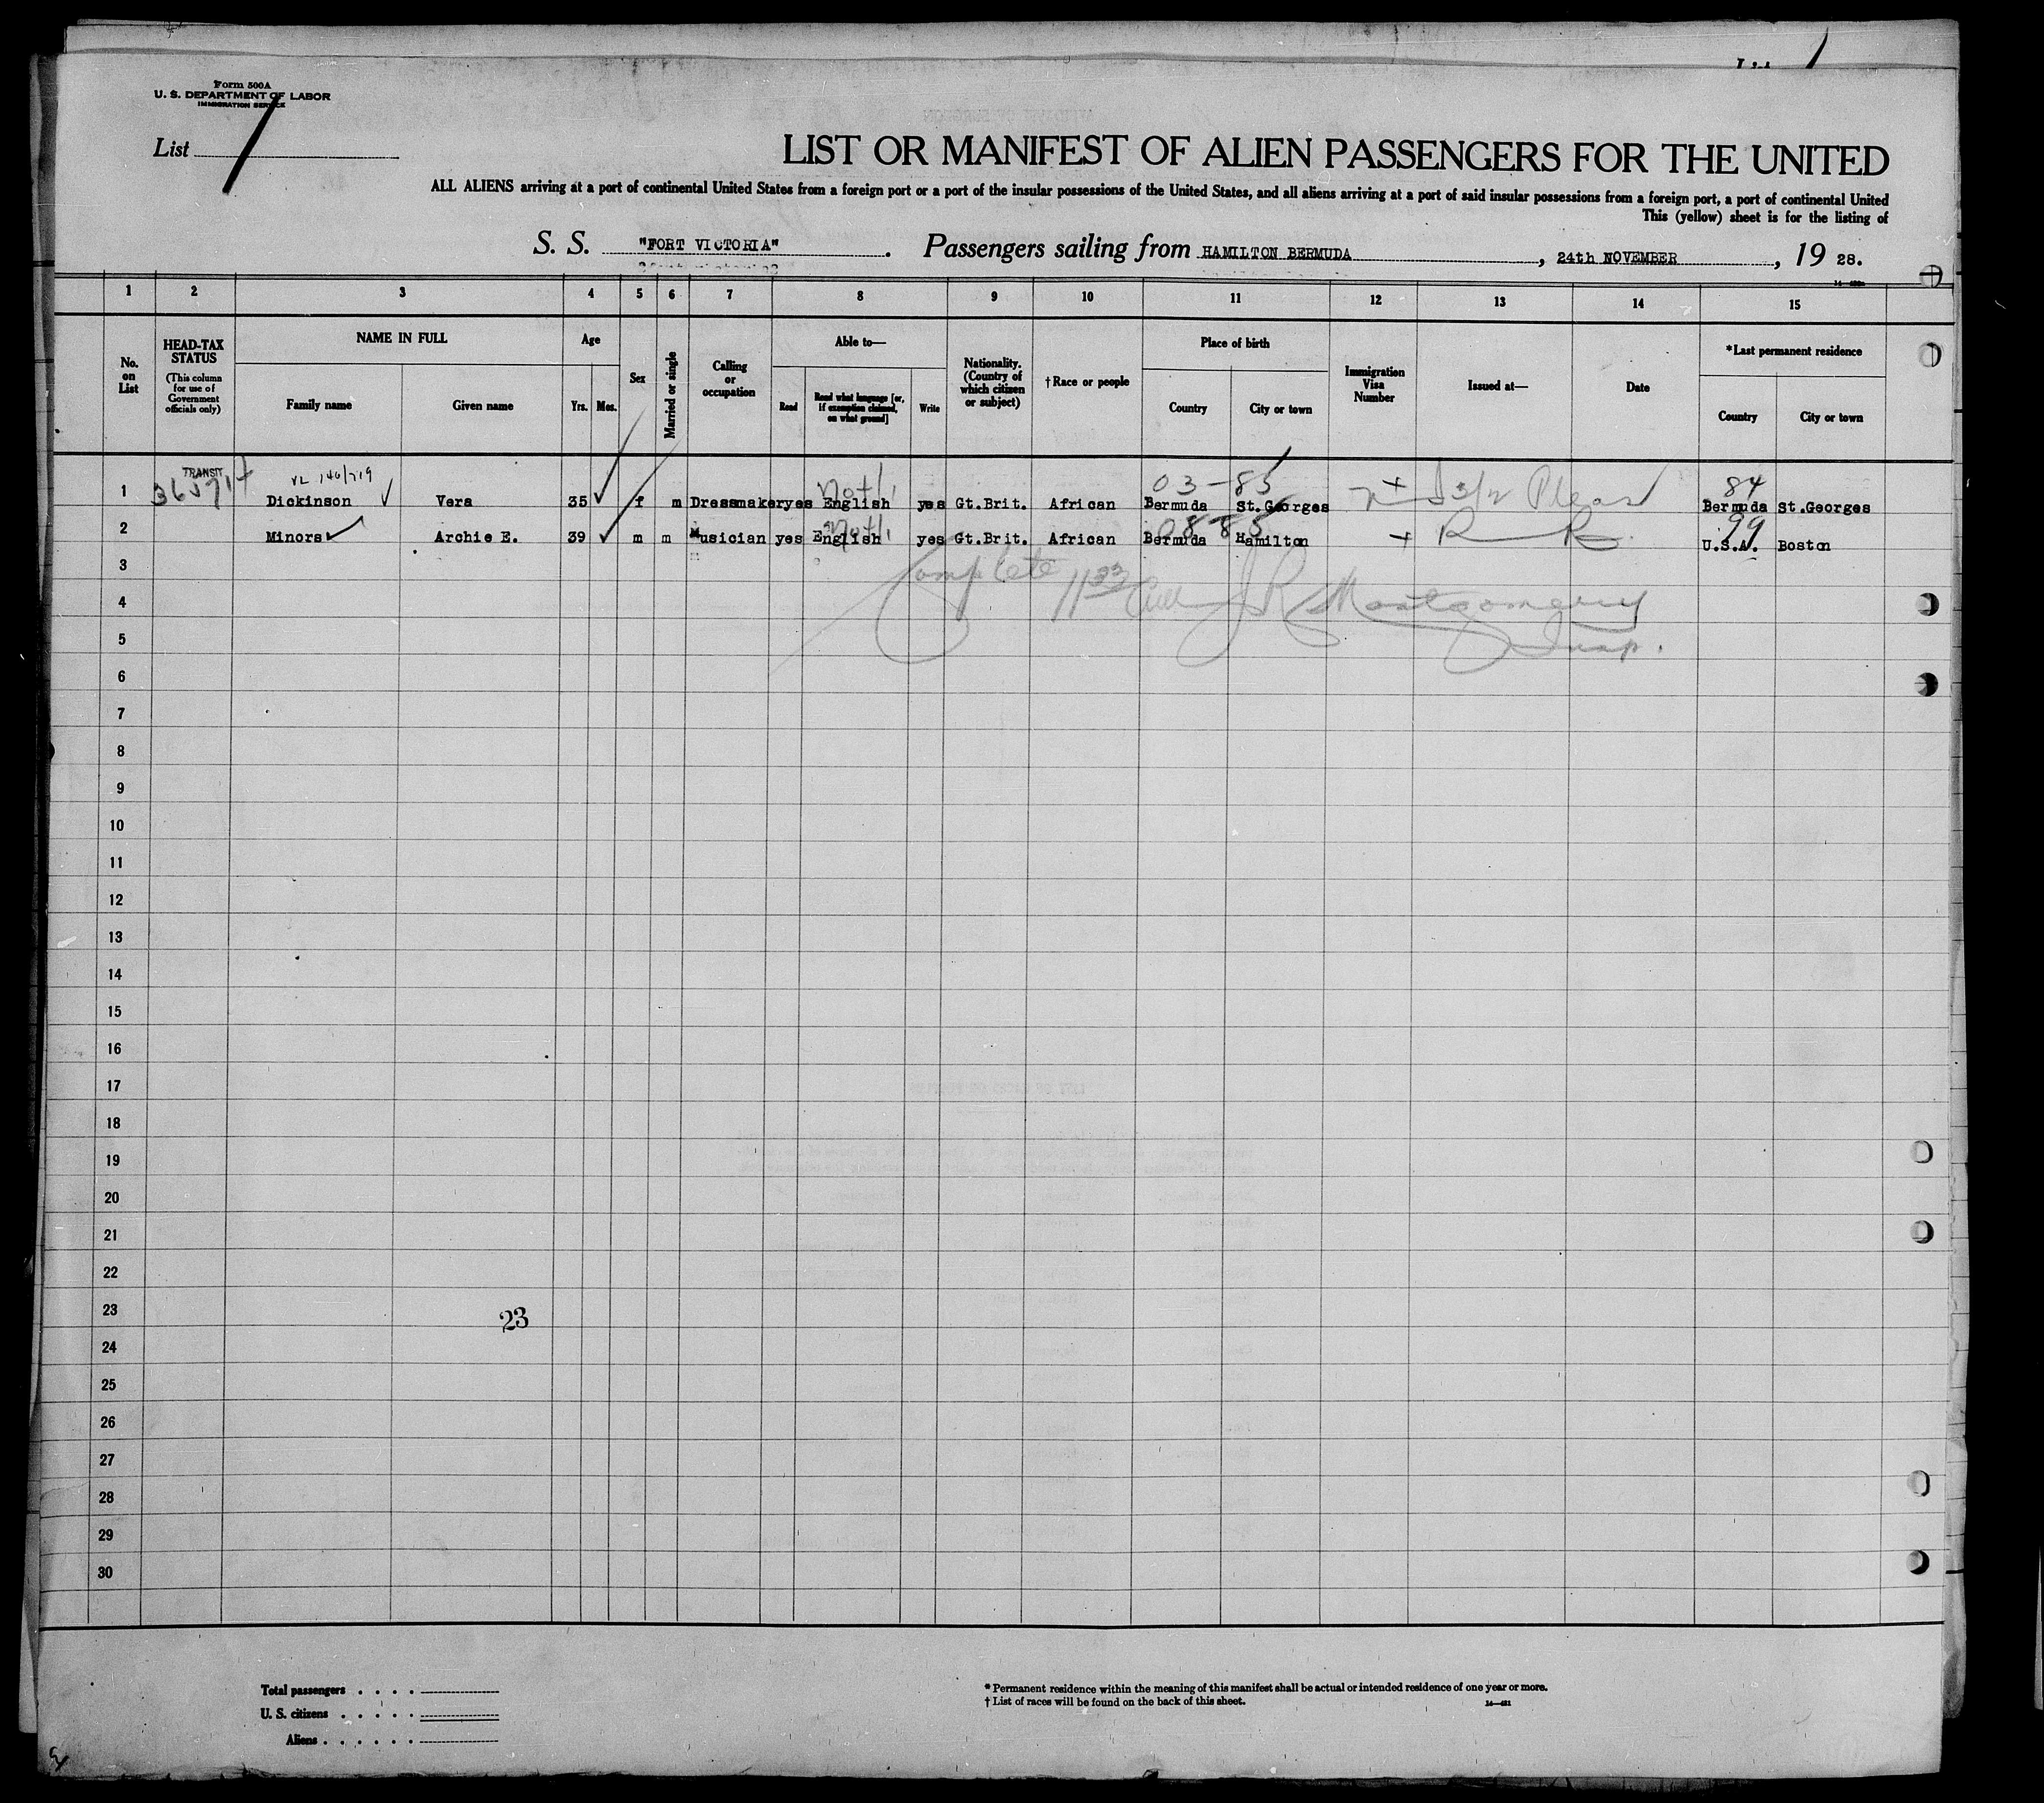 Form 500A
U. S. DEPARTMENT OF LABOR
IMMIGRATION SERVICE
List 1
LIST OR MANIFEST OF ALIEN PASSENGERS FOR THE UNITED
ALL ALIENS arriving at a port of continental United States from a foreign port or a port of the insular possessions of the United States, and all aliens arriving at a port of said insular possessions from a foreign port, a port of continental United
This (yellow) sheet is for the listing of
S. S. "FORT VICTORIA". Passengers sailing from HAMILTON BERMUDA, 24th NOVEMBER, 19 28.
1 2 3 4 5 6 7 8 9 10 11 12 13 14 15
No. on List
HEAD-TAX STATUS (This column for use of Government officials only)
NAME IN FULL
Family name
Given name
Age
Yrs.
Mos.
Sex
Married or single
Calling or occupation
Able to—
Read
Read what language [or, if exemption claimed, on what ground]
Write
Nationality. (Country of which citizen or subject)
†Race or people
Place of birth
Country
City or town
Immigration Visa Number
Issued at—
Date
*Last permanent residence
Country
City or town
TRANSIT
03-85
84
1 Dickinson Vera 35 f m Dressmaker yes English yes Gt.Brit. African Bermuda St.Georges Bermuda St.Georges
99
2 Minors Archie E. 39 m m Musician yes English yes Gt.Brit. African Bermuda Hamilton U.S.A. Boston
3 Complete
4 J R Montgomery
5 Insp.
6
7
8
9
10
11
12
13
14
15
16
17
18
19
20
21
22
23 23
24
25
26
27
28
29
30
Total passengers . . . .
U. S. citizens . . . . .
Aliens . . . . . .
* Permanent residence within the meaning of this manifest shall be actual or intended residence of one year or more.
† List of races will be found on the back of this sheet.